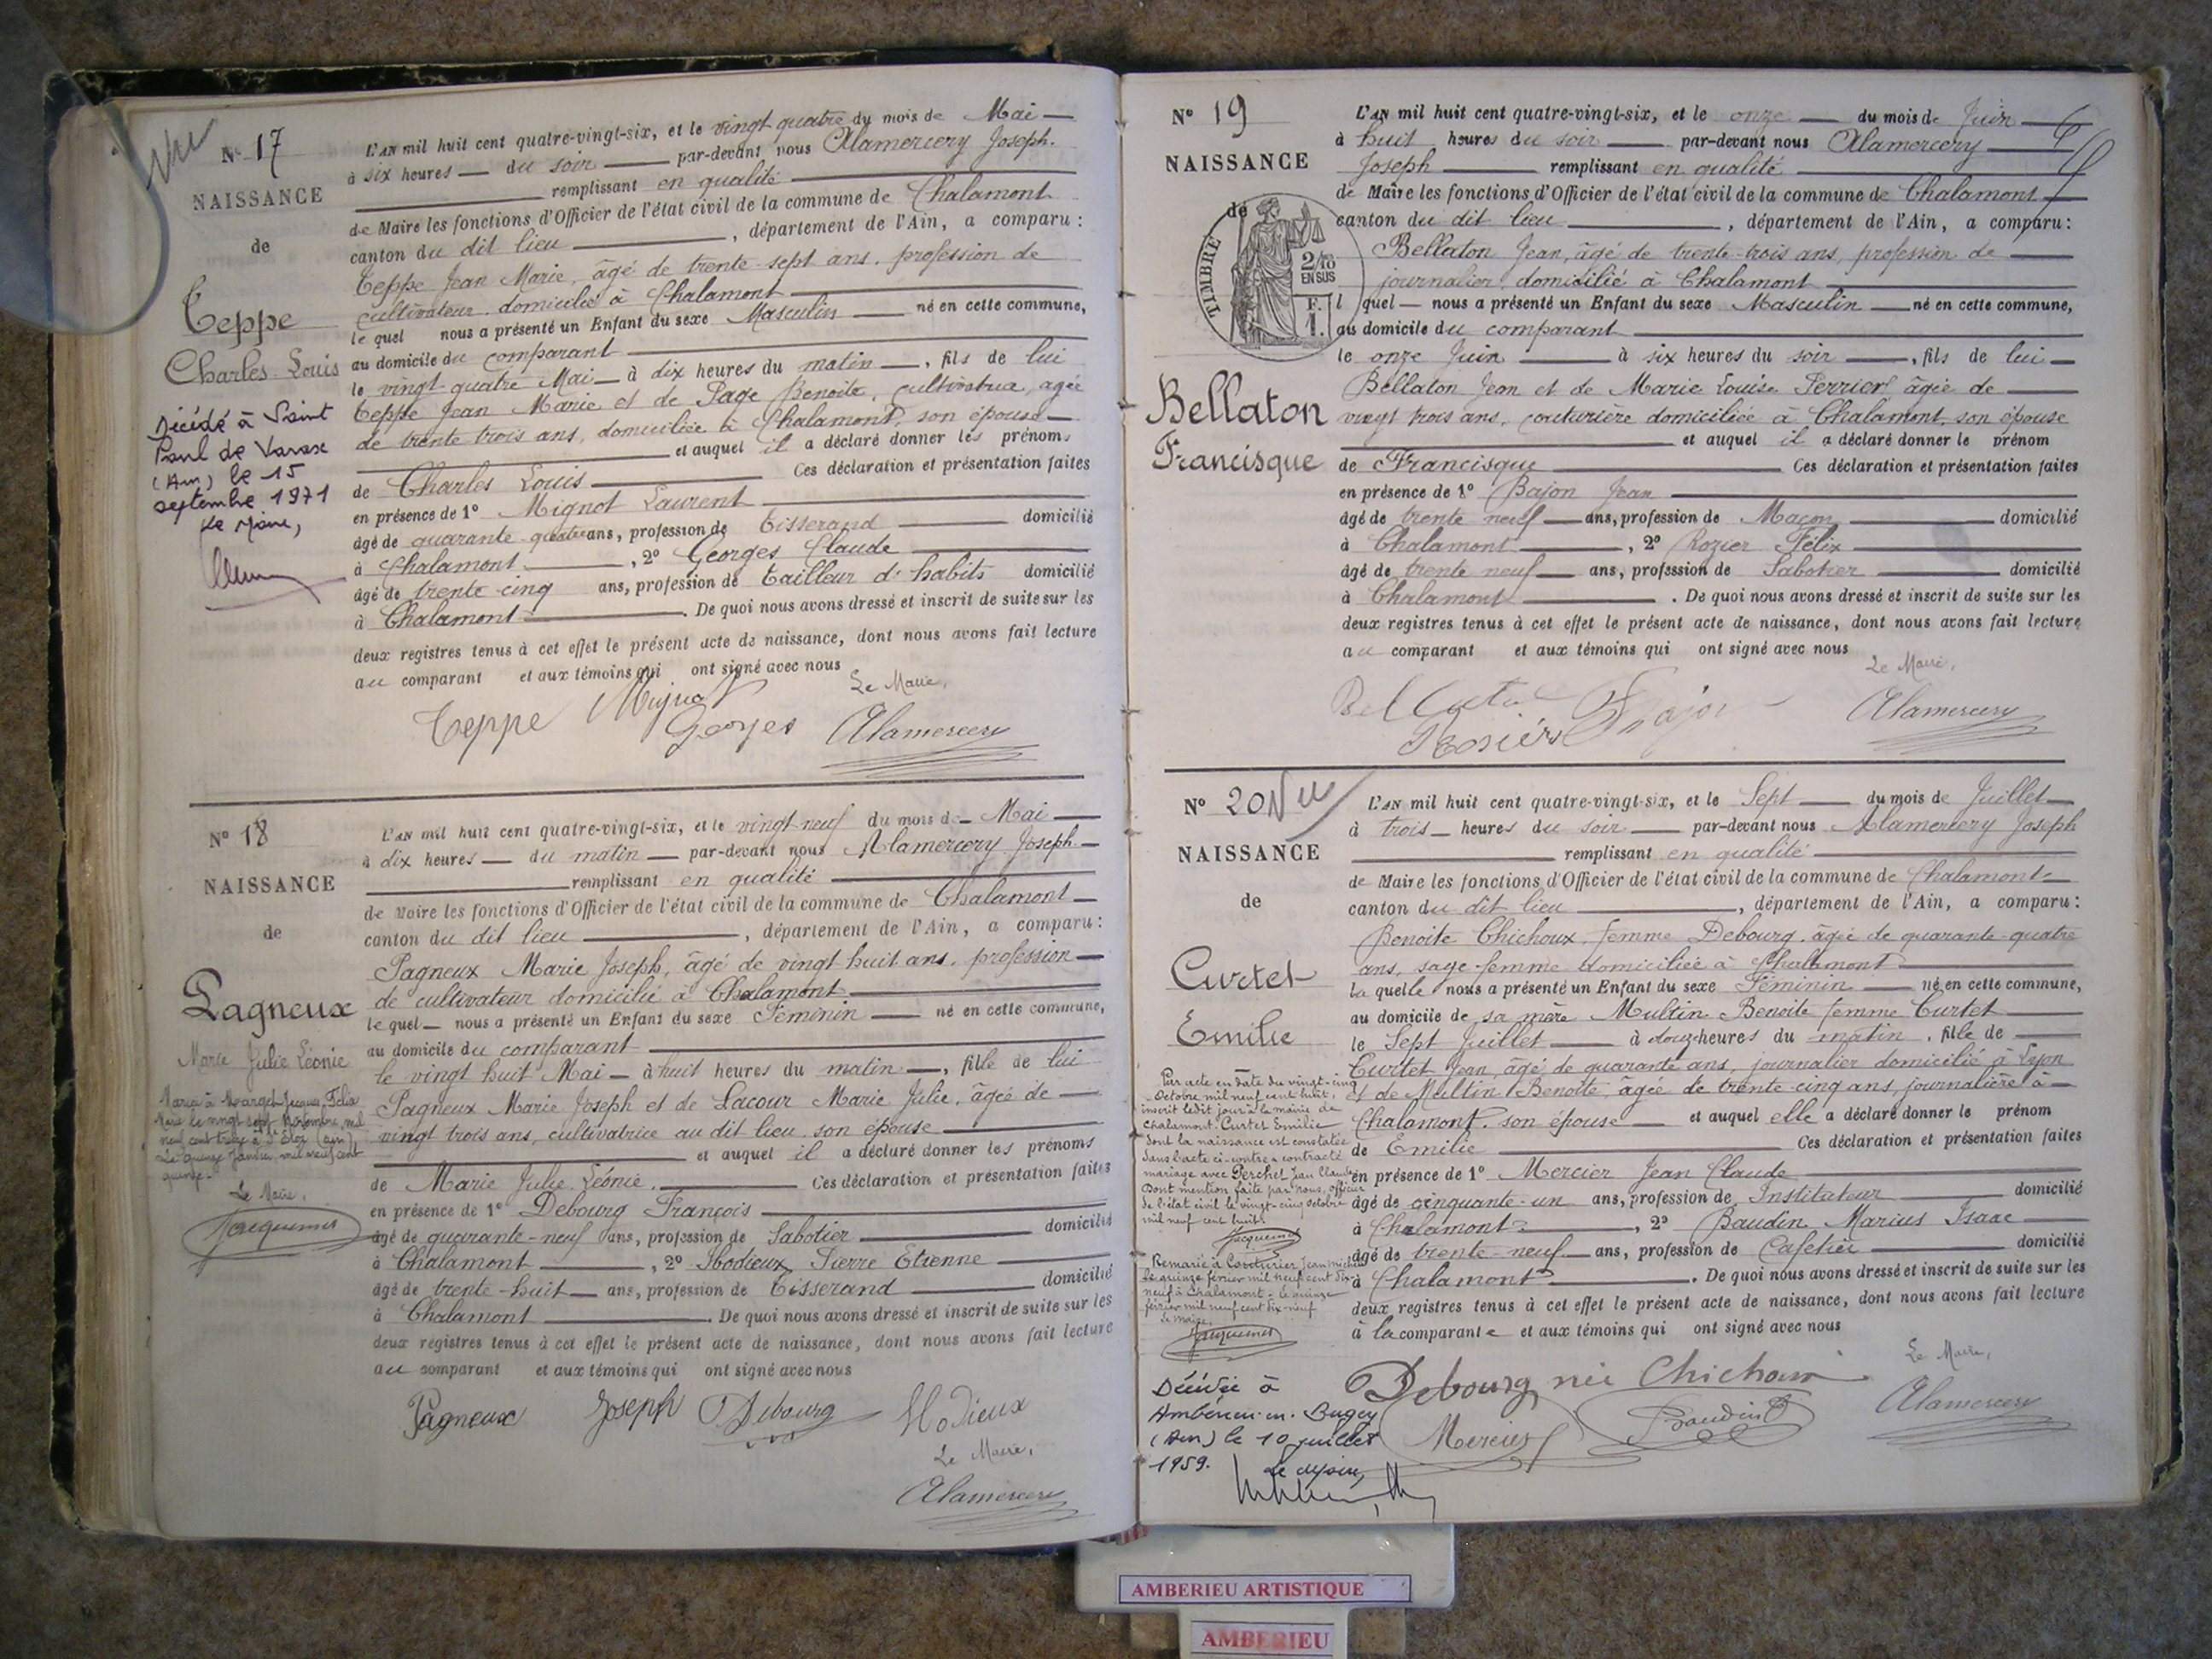 Vu
N° 17
NAISSANCE
de
Teppe
Charles Louis
Décédé à Saint
Paul de Varax
(Ain) le 15
septembre 1971
Le Maire,
L'AN mil huit cent quatre-vingt-six, et le vingt quatre du mois de Mai
à six heures du soir par-devant nous Alamercery Joseph.
remplissant en qualité
de Maire les fonctions d'Officier de l'état civil de la commune de Chalamont
canton du dit lieu, département de l'Ain, a comparu:
Teppe Jean Marie, âgé de trente-sept ans, profession de
cultivateur domicilié à Chalamont
le quel nous a présenté un Enfant du sexe Masculin né en cette commune,
au domicile du comparant
le vingt quatre Mai à dix heures du matin, fils de lui
Teppe Jean Marie et de Page Benoite, cultivatrice, agée
de trente trois ans, domiciliée à Chalamont, son épouse
et auquel il a déclaré donner les prénoms
de Charles Louis Ces déclaration et présentation faites
en présence de 1° Mignot Laurent
âgé de quarante-quatre ans, profession de Tisserand domicilié
à Chalamont, 2° Georges Claude
âgé de trente-cinq ans, profession de tailleur d'habits domicilié
à Chalamont. De quoi nous avons dressé et inscrit de suite sur les
deux registres tenus à cet effet le présent acte de naissance, dont nous avons fait lecture
au comparant et aux témoins qui ont signé avec nous
Le Maire,
Teppe Mignot Georges Alamercery
N° 18
NAISSANCE
de
Pagneux
Marie Julie Léonie
Mariée à Marget Jacques Félix
Marie le vingt sept Novembre mil
neuf cent treize à St Eloi (Ain)
Le quinze Janvier mil neuf cent
quinze.
Le Maire,
Jacquemet
L'AN mil huit cent quatre-vingt-six, et le vingt-neuf du mois de Mai
à dix heures du matin par-devant nous Alamercery Joseph
remplissant en qualité
de Maire les fonctions d'Officier de l'état civil de la commune de Chalamont
canton du dit lieu, département de l'Ain, a comparu:
Pagneux Marie Joseph, âgé de vingt huit ans, profession
de cultivateur domicilié à Chalamont
le quel nous a présenté un Enfant du sexe Féminin né en cette commune,
au domicile du comparant
le vingt huit Mai à huit heures du matin, fille de lui
Pagneux Marie Joseph et de Lacour Marie Julie, âgée de
vingt trois ans, cultivatrice au dit lieu, son épouse
et auquel il a déclaré donner les prénoms
de Marie Julie Léonie. Ces déclaration et présentation faites
en présence de 1° Debourg François
âgé de quarante-neuf ans, profession de Sabotier domicilié
à Chalamont, 2° Hodieux Pierre Etienne
âgé de trente-huit ans, profession de Tisserand domicilié
à Chalamont. De quoi nous avons dressé et inscrit de suite sur les
deux registres tenus à cet effet le présent acte de naissance, dont nous avons fait lecture
au comparant et aux témoins qui ont signé avec nous
Pagneux Joseph Debourg Hodieux
Le Maire,
Alamercery
N° 19
NAISSANCE
de
TIMBRE
2/10
EN SUS
F.
1.
Bellaton
Francisque
L'AN mil huit cent quatre-vingt-six, et le onze du mois de Juin
à huit heures du soir par-devant nous Alamercery
Joseph remplissant en qualité
de Maire les fonctions d'Officier de l'état civil de la commune de Chalamont
canton du dit lieu, département de l'Ain, a comparu:
Bellaton Jean, âgé de trente-trois ans, profession de
journalier, domicilié à Chalamont
l quel nous a présenté un Enfant du sexe Masculin né en cette commune,
au domicile du comparant
le onze Juin à six heures du soir, fils de lui
Bellaton Jean et de Marie Louise Perrier, âgée de
vingt trois ans, couturière domiciliée à Chalamont, son épouse
et auquel il a déclaré donner le prénom
de Francisque Ces déclaration et présentation faites
en présence de 1° Bajon Jean
âgé de trente neuf ans, profession de Maçon domicilié
à Chalamont, 2° Rozier Félix
âgé de trente neuf ans, profession de Sabotier domicilié
à Chalamont. De quoi nous avons dressé et inscrit de suite sur les
deux registres tenus à cet effet le présent acte de naissance, dont nous avons fait lecture
au comparant et aux témoins qui ont signé avec nous
Le Maire,
Bellaton Bajon
Rosier Alamercery
N° 20 Vu
NAISSANCE
de
Curtet
Emilie
Par acte en date du vingt-cinq
Octobre mil neuf cent huit,
inscrit ledit jour à la mairie de
Chalamont. Curtet Emilie
dont la naissance est constatée
dans l'acte ci-contre a contracté
mariage avec Perchet Jean Claude
Dont mention faite par nous, officier
de l'état civil le vingt-cinq octobre
mil neuf cent huit.
Jacquemet
Remariée à Couturier Jean Michel
le quinze février mil neuf cent dix-
neuf à Chalamont - le quinze
février mil neuf cent dix-neuf
Le Maire
Jacquemet
Décédée à
Ambérieu-en-Bugey
(Ain) le 10 juillet
1959. Le Maire,
L'AN mil huit cent quatre-vingt-six, et le Sept du mois de Juillet
à trois heures du soir par-devant nous Alamercery Joseph
remplissant en qualité
de Maire les fonctions d'Officier de l'état civil de la commune de Chalamont
canton du dit lieu, département de l'Ain, a comparu:
Benoite Chichoux, femme Debourg, âgée de quarante-quatre
ans, sage-femme domiciliée à Chalamont
La quelle nous a présenté un Enfant du sexe Féminin né en cette commune,
au domicile de sa mère Multin Benoite femme Curtet
le Sept Juillet à douze heures du matin, fille de
Curtet Jean, âgé de quarante ans, journalier domicilié à Lyon
et de Multin Benoîte, âgée de trente cinq ans, journalière à
Chalamont, son épouse et auquel elle a déclaré donner le prénom
de Emilie Ces déclaration et présentation faites
en présence de 1° Mercier Jean Claude
âgé de cinquante-un ans, profession de Instituteur domicilié
à Chalamont, 2° Baudin Marius Isaac
âgé de trente-neuf ans, profession de Cafetier domicilié
à Chalamont. De quoi nous avons dressé et inscrit de suite sur les
deux registres tenus à cet effet le présent acte de naissance, dont nous avons fait lecture
à la comparante et aux témoins qui ont signé avec nous
Le Maire,
Debourg née Chichoux
Mercier Baudin Alamercery
AMBERIEU ARTISTIQUE
AMBERIEU